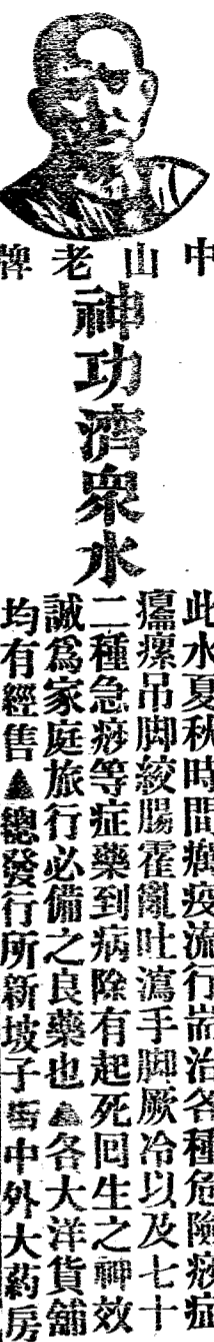 中山老牌
神功濟眾水
此水夏秋時間癘疫流行耑治各種危險痧症
癟瘰吊脚絞腸霍亂吐瀉手脚厥冷以及七十
二種急痧等症藥到病除有起死回生之神效
誠為家庭旅行必備之良藥也▲各大洋貨舖
均有經售▲總發行所新坡子街中外大葯房